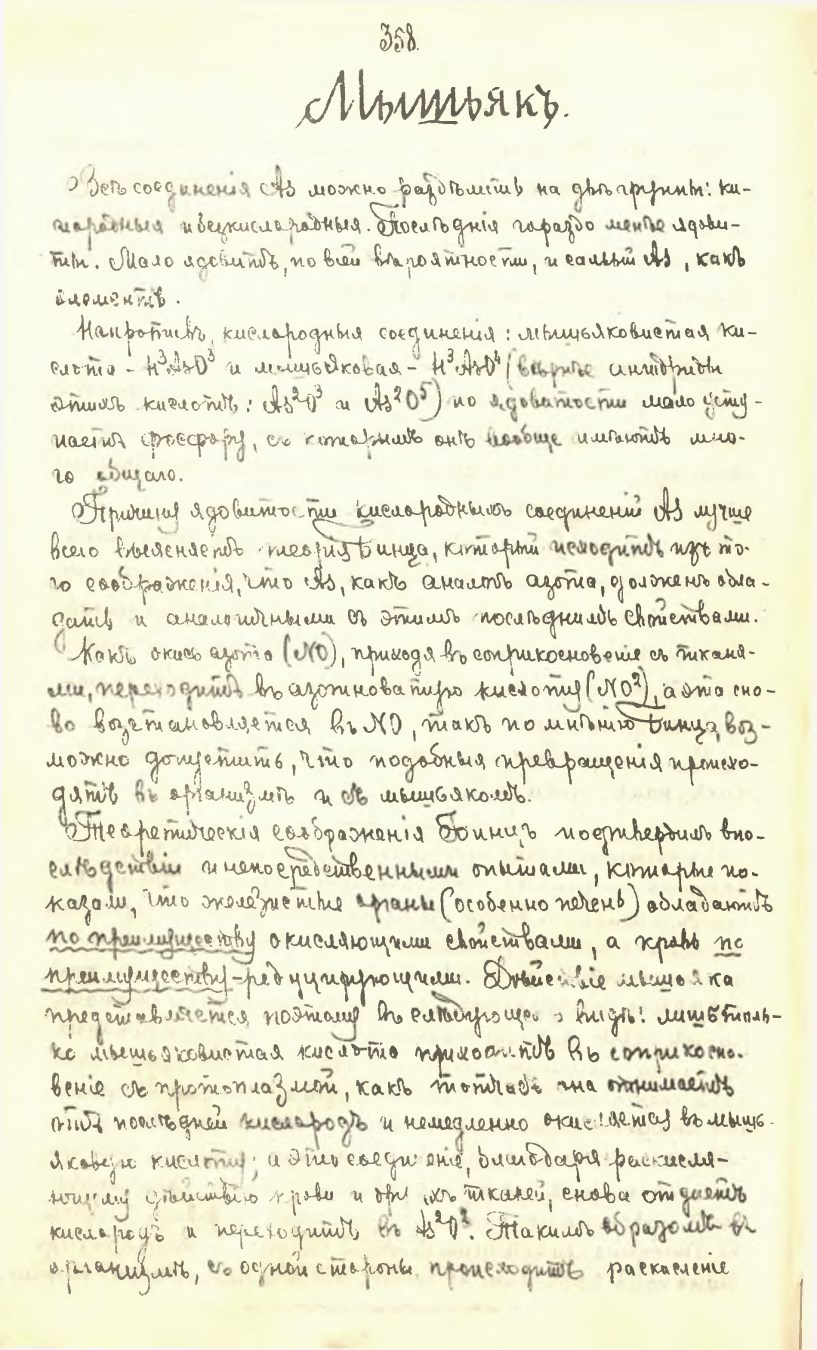 358.
Мышьякъ.
Всѣ соединенія As можно раздѣлить на двѣ группы: ки-
лородныя и безкислородныя. Послѣднія гораздо менѣе ядови-
ты. Мало ядовитъ, по всей вѣроятности, и самый As, какъ
элементъ.
Напротивъ, кислородныя соединенія: мышьяковистая ки-
слота - H³AsO³ и мышьяковая - H³AsO⁴ (вѣрнѣе ангидриды
этихъ кислотъ: As²O³ и As²O⁵) по ядовитости мало усту-
паетъ фосфору, съ которымъ онъ вообще имѣютъ мно-
го общаго.
Причину ядовитости кислородныхъ соединеній As лучше
всего выясняетъ теорія Бинца, который исходитъ изъ то-
го соображенія, что As, какъ аналогъ азота, долженъ обла-
дать и аналогичными съ этимъ послѣднимъ свойствами.
Какъ окись азота (NO), приходя въ соприкосновеніе съ тканя-
ми, переходитъ въ азотноватую кислоту (NO²), а эта сно-
ва возстановляется въ NO, такъ по мнѣнію Бинца, воз-
можно допустить, что подобныя превращенія происхо-
дятъ въ организмѣ и съ мышьякомъ.
Теоретическія соображенія Бинцъ подтвердилъ впо-
слѣдствіи и непосредственными опытами, которые по-
казали, что железистые органы (особенно печень) обладаютъ
по преимуществу окисляющими свойствами, а кровь по
преимуществу - редуцирующими. Дѣйствіе мышьяка
представляется поэтому въ слѣдующемъ видѣ: лишь толь-
ко мышьяковистая кислота приходитъ въ соприкосно-
веніе съ протоплазмой, какъ тотчасъ она отнимаетъ
отъ послѣдней кислородъ и немедленно окисляется въ мышь-
яковую кислоту; а это соединеніе, благодаря раскисля-
ющему дѣйствію крови и другихъ тканей, снова отдаетъ
кислородъ и переходитъ въ As²O³. Такимъ образомъ въ
организмѣ, съ одной стороны происходитъ раскисленіе